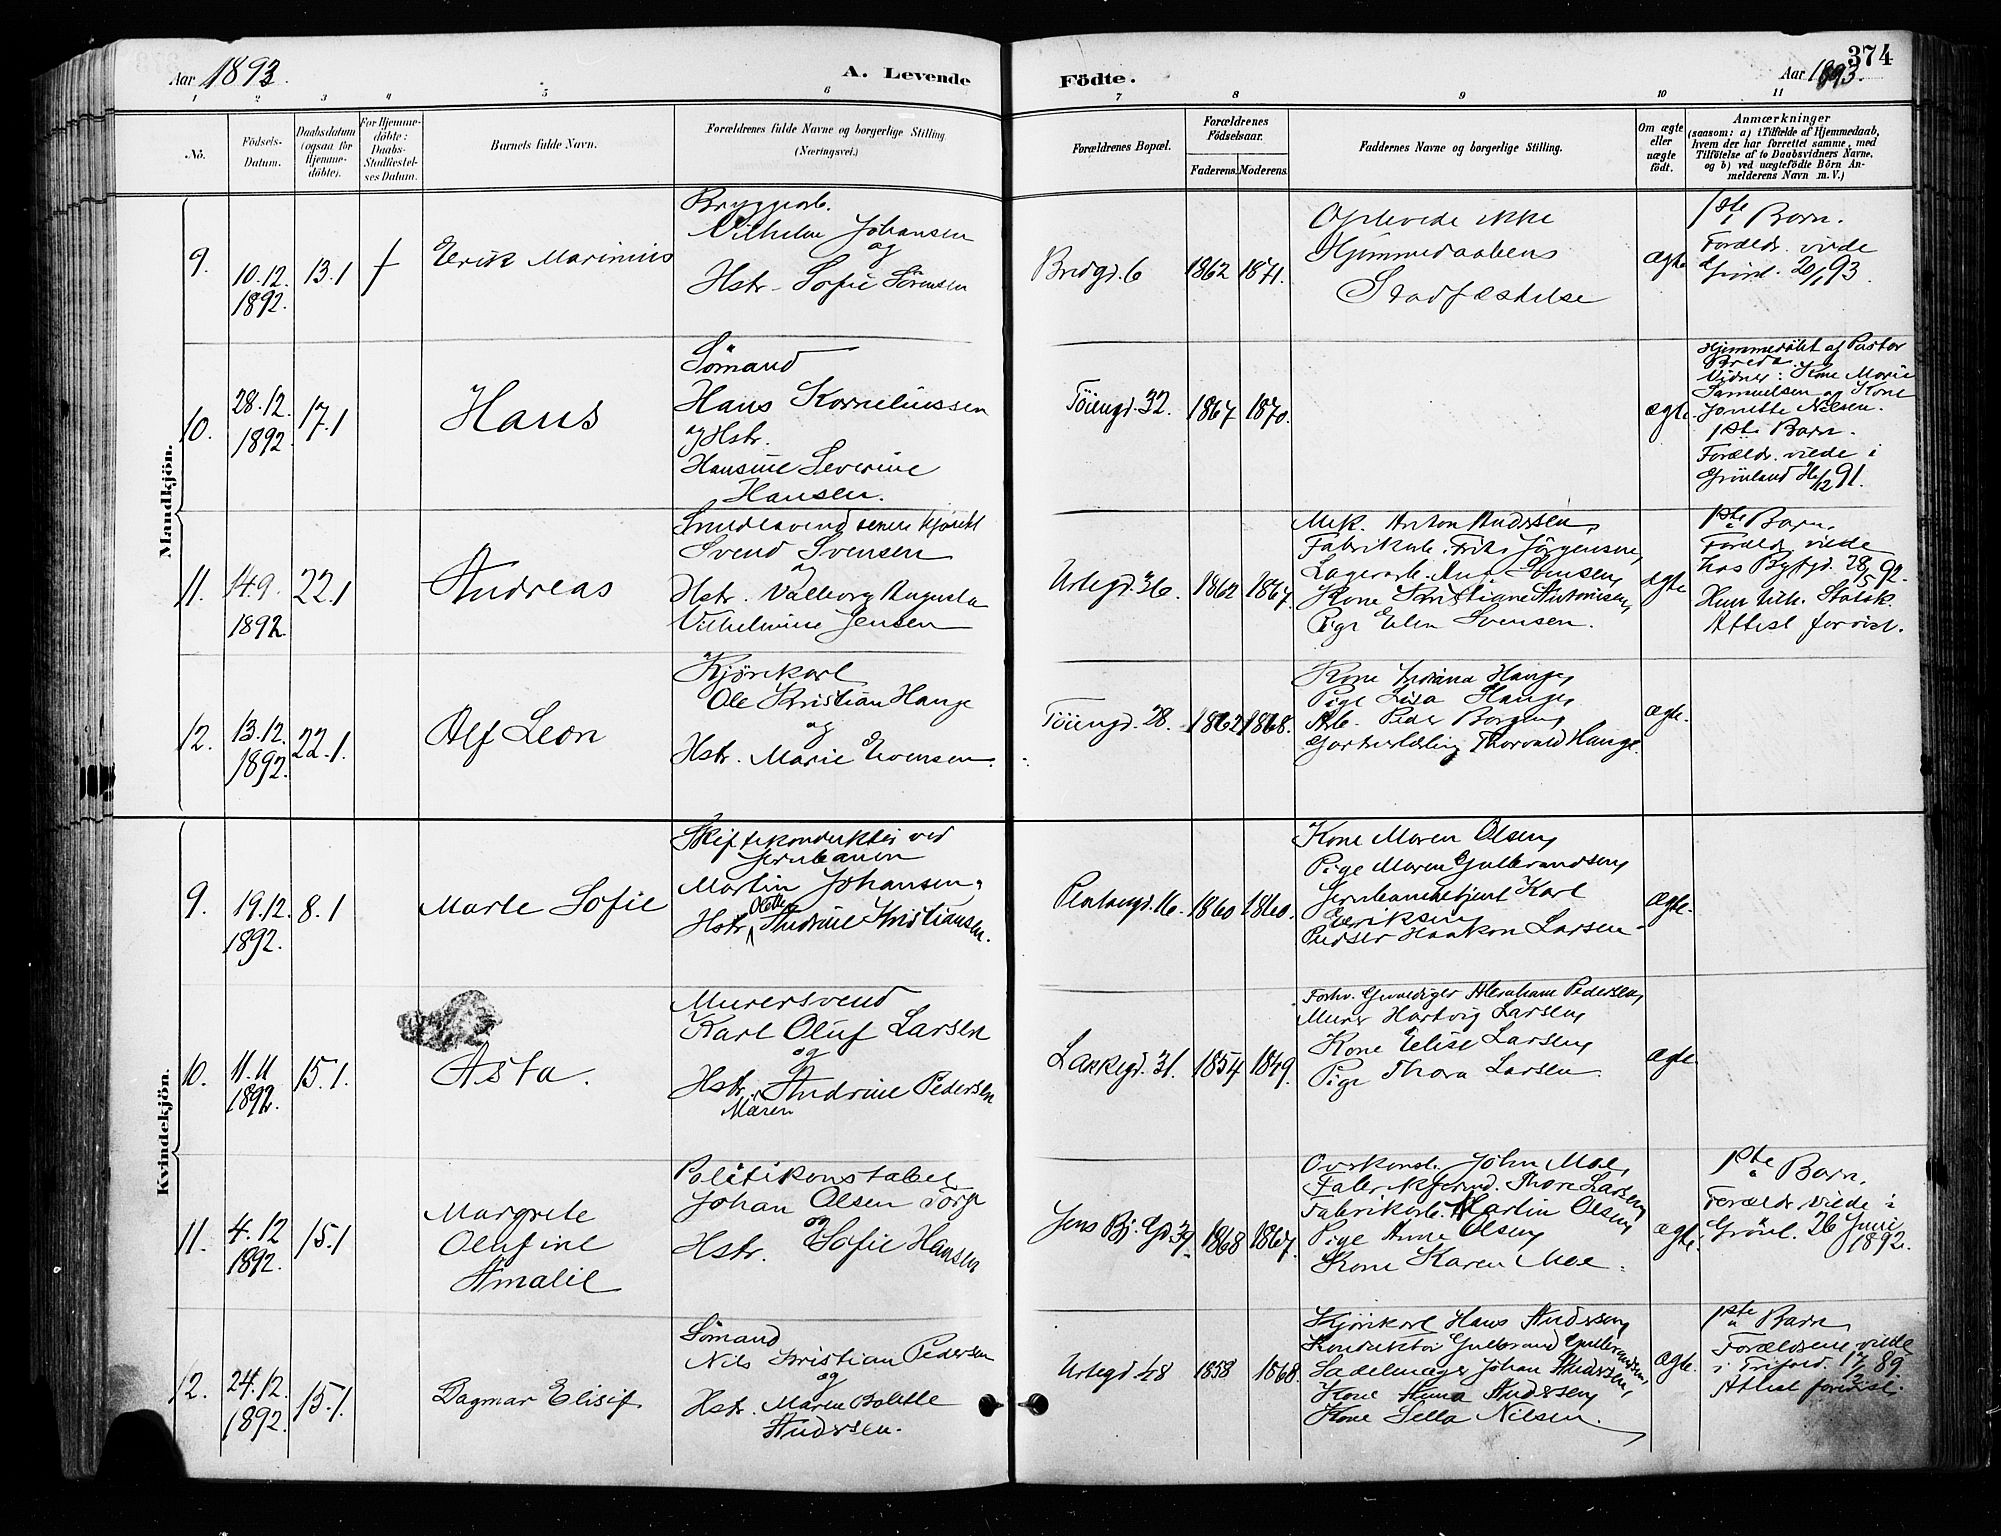 374
Aar 1893.
A. Levende
Födte.
Aar 1893.
1 2 3 4 5 6 7 8 9 10 11
No.
Födsels-
Datum.
Daabsdatum
(ogsaa for
Hjemme-
döbte).
For Hjemme-
döbte:
Daabs-
Stadfæstel-
ses Datum.
Barnets fulde Navn.
Forældrenes fulde Navne og borgerlige Stilling.
(Næringsvei.)
Forældrenes Bopæl.
Forældrenes
Födselsaar.
Faderens. Moderens.
Faddernes Navne og borgerlige Stilling.
Om ægte
eller
uægte
födt.
Anmærkninger
(saasom: a) i Tilfælde af Hjemmedaab,
hvem der har forrettet samme, med
Tilföielse af to Daabsvidners Navne,
og b) ved uægtefödte Börn An-
melderens Navn m. V.)
Mandkjön.
9.
10.12.
1892.
13.1
Erik Marinius
Bryggarb.
Vilhelm Johansen
og
Hstr. Sofie Sörensen
Bredgd. 6
1862 1871.
Oplevede ikke
Hjemmedaabens
Stadfæstelse
ægte
1ste Barn.
Foreldr. viede
Grönl. 20/1 93.
10.
28.12.
1892
17.1
Hans
Sömand
Hans Korneliussen
og Hstr.
Hansine Severine
Hansen.
Töiengd. 32.
1867 1870.
ægte
Hjemmedöbt af Pastor
Breda.
Vidner: Kone Marie
Samuelsen og Kone
Janette Nilsen.
1ste Barn.
Foreldr. viede i
Grönland 26/12 91.
11.
14.9.
1892
22.1
Andreas
Smedesvend senere kjörekl
Svend Svensen
og
Hstr. Valborg Augusta
Vilhelmine Jensen
Urtegd. 36.
1862 1867.
Mek. Anton Andersen,
Fabrikarb. Frits Jörgensen,
Kone Kristiane Antonisen,
Pige Elen Svensen.
ægte
1ste Barn.
Foreldr. viede
hos Byfgd. 28/5 92.
Attest forvist.
12.
13.12.
1892.
22.1.
Alf Leon
Kjörekarl
Ole Kristian Hauge
og
Hstr. Marie Evensen.
Töiengd. 28.
1862 1868.
Pige Lisa Hauge,
Arb. Peder Borgen,
Thorvald Hauge.
ægte.
Kvindekjön.
9.
19.12.
1892.
8.1
Marte Sofie
Skiftekonduktör ved
Jernbanen
Martin Johansen,
Hstr. Andrine Kristiansen.
Platougd. 16.
1860 1860.
Kone Maren Olsen,
Pige Maren Gulbrandsen,
Jernbanebetjent Karl
Eriksen,
Pudser Haakon Larsen.
ægte.
10.
11.11
1892.
15.1.
Asta.
Murersvend
Karl Oluf Larsen
og
Hstr. Andrine Pedersen
Maren
Lakkegd. 31.
1854 1849.
Forhv. Abraham Pedersen,
Murer Hartvig Larsen,
Kone Elise Larsen,
Pige Thora Larsen.
ægte
11.
4.12
1892.
15.1
Margrete
Olufine
Amalie
Politikonstabel
Johan Olsen Torp
og
Hstr. Sofie Hansen
Jens Bj. Gd. 37.
1868 1867.
Overkonst. John Moe,
Thore Larsen,
Fabrikarb. Martin Olsen,
Pige Anne Olsen,
Kone Karen Moe.
ægte.
1ste Barn.
Foreldr. viede i
Grönl. 26 Juni
1892.
12.
24.12.
1892.
15.1.
Dagmar Elisif.
Sömand
Nils Kristian Pedersen
og
Hstr. Maren Bolette
Andersen.
Urtegd. 48
1858 1868.
Kjörekarl Hans Andersen,
Konduktör Gulbrand Gulbrandsen,
Sadelmager Johan Andersen,
Kone Anna Andersen,
Kone Sella Nilsen.
ægte.
1ste Barn,
Forældrene viede
i Trefold. 17/2 89.
Attest forevist.